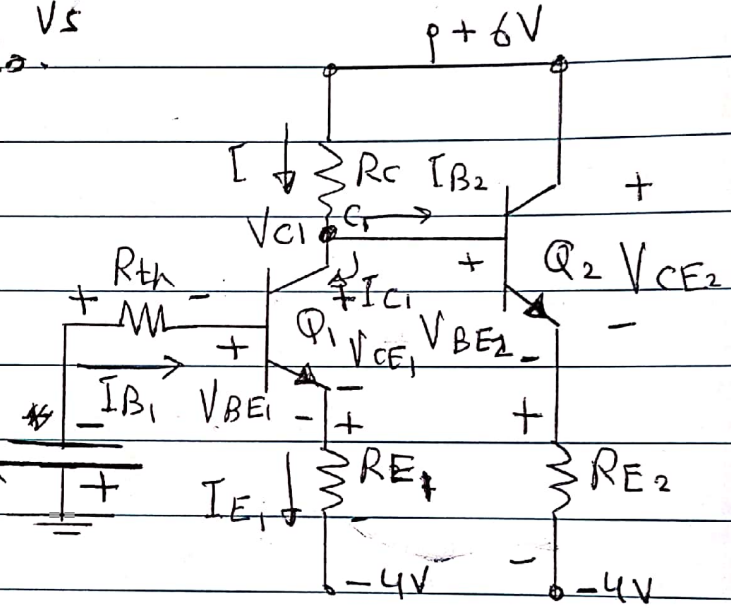 Vs
+6V
I
RC
IB2
VC1
C1
+
Rth
+ -
Q2
VCE2
+
IC1
+
Q1
VCE1
VBE2
-
+
-
IB1
VBE1
-
-
-
+
+
-
+
RE1
RE2
IE1
-
-4V
-4V